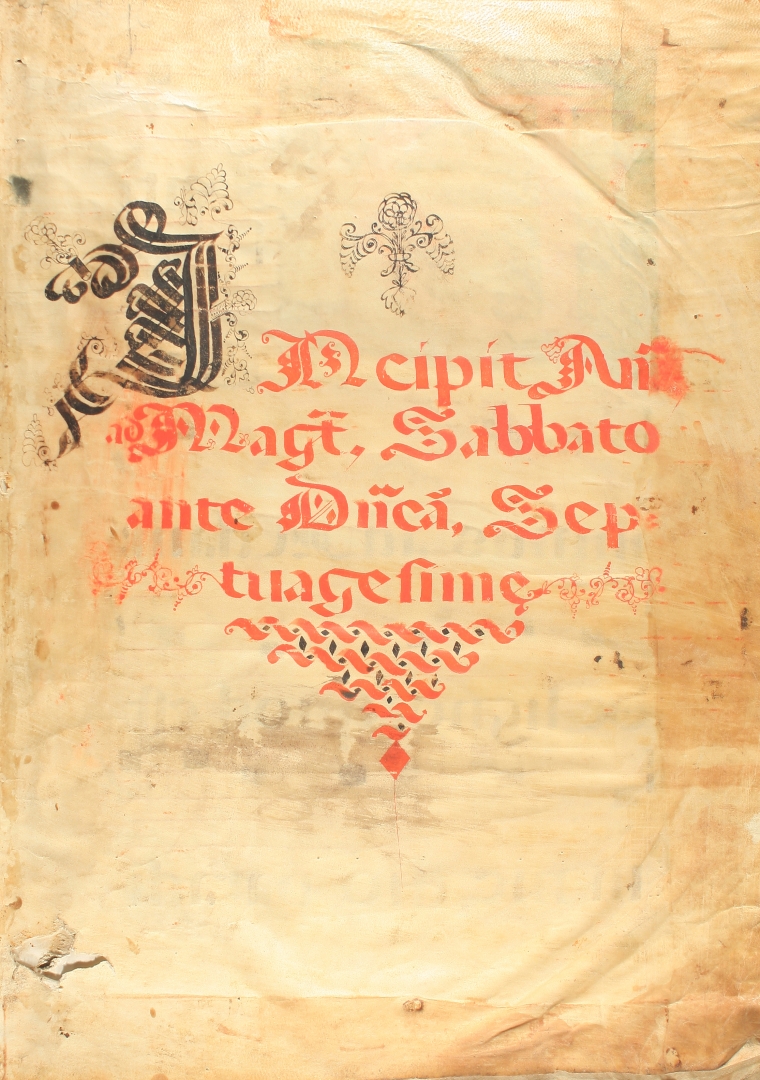 INcipit Añ
ad Magt̃, Sabbato
ante Dñcã, Sep-
tuagesime